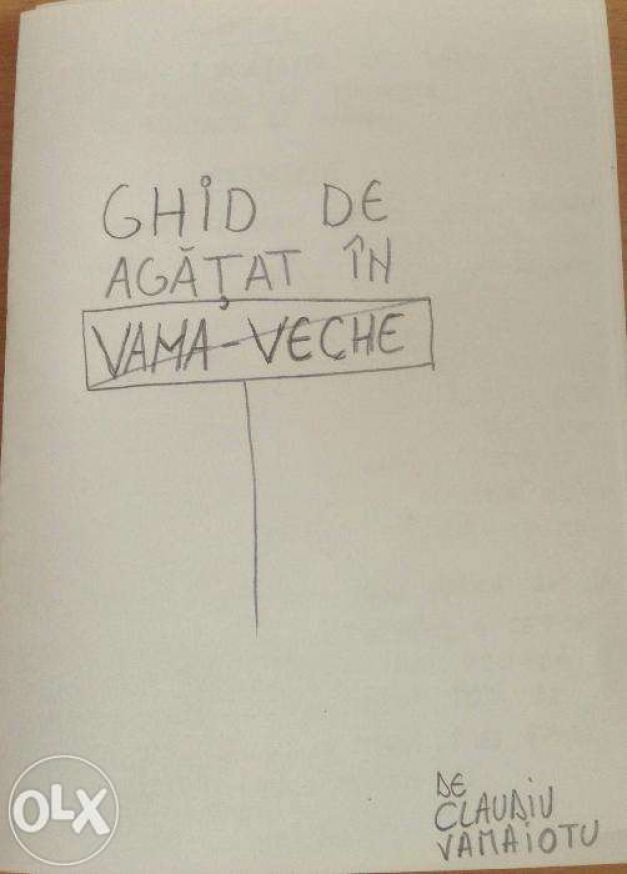 GHiD DE
AGĂȚAT ÎN
VAMA-VECHE
DE
CLAUDiU
VAMAiOTU
OLX